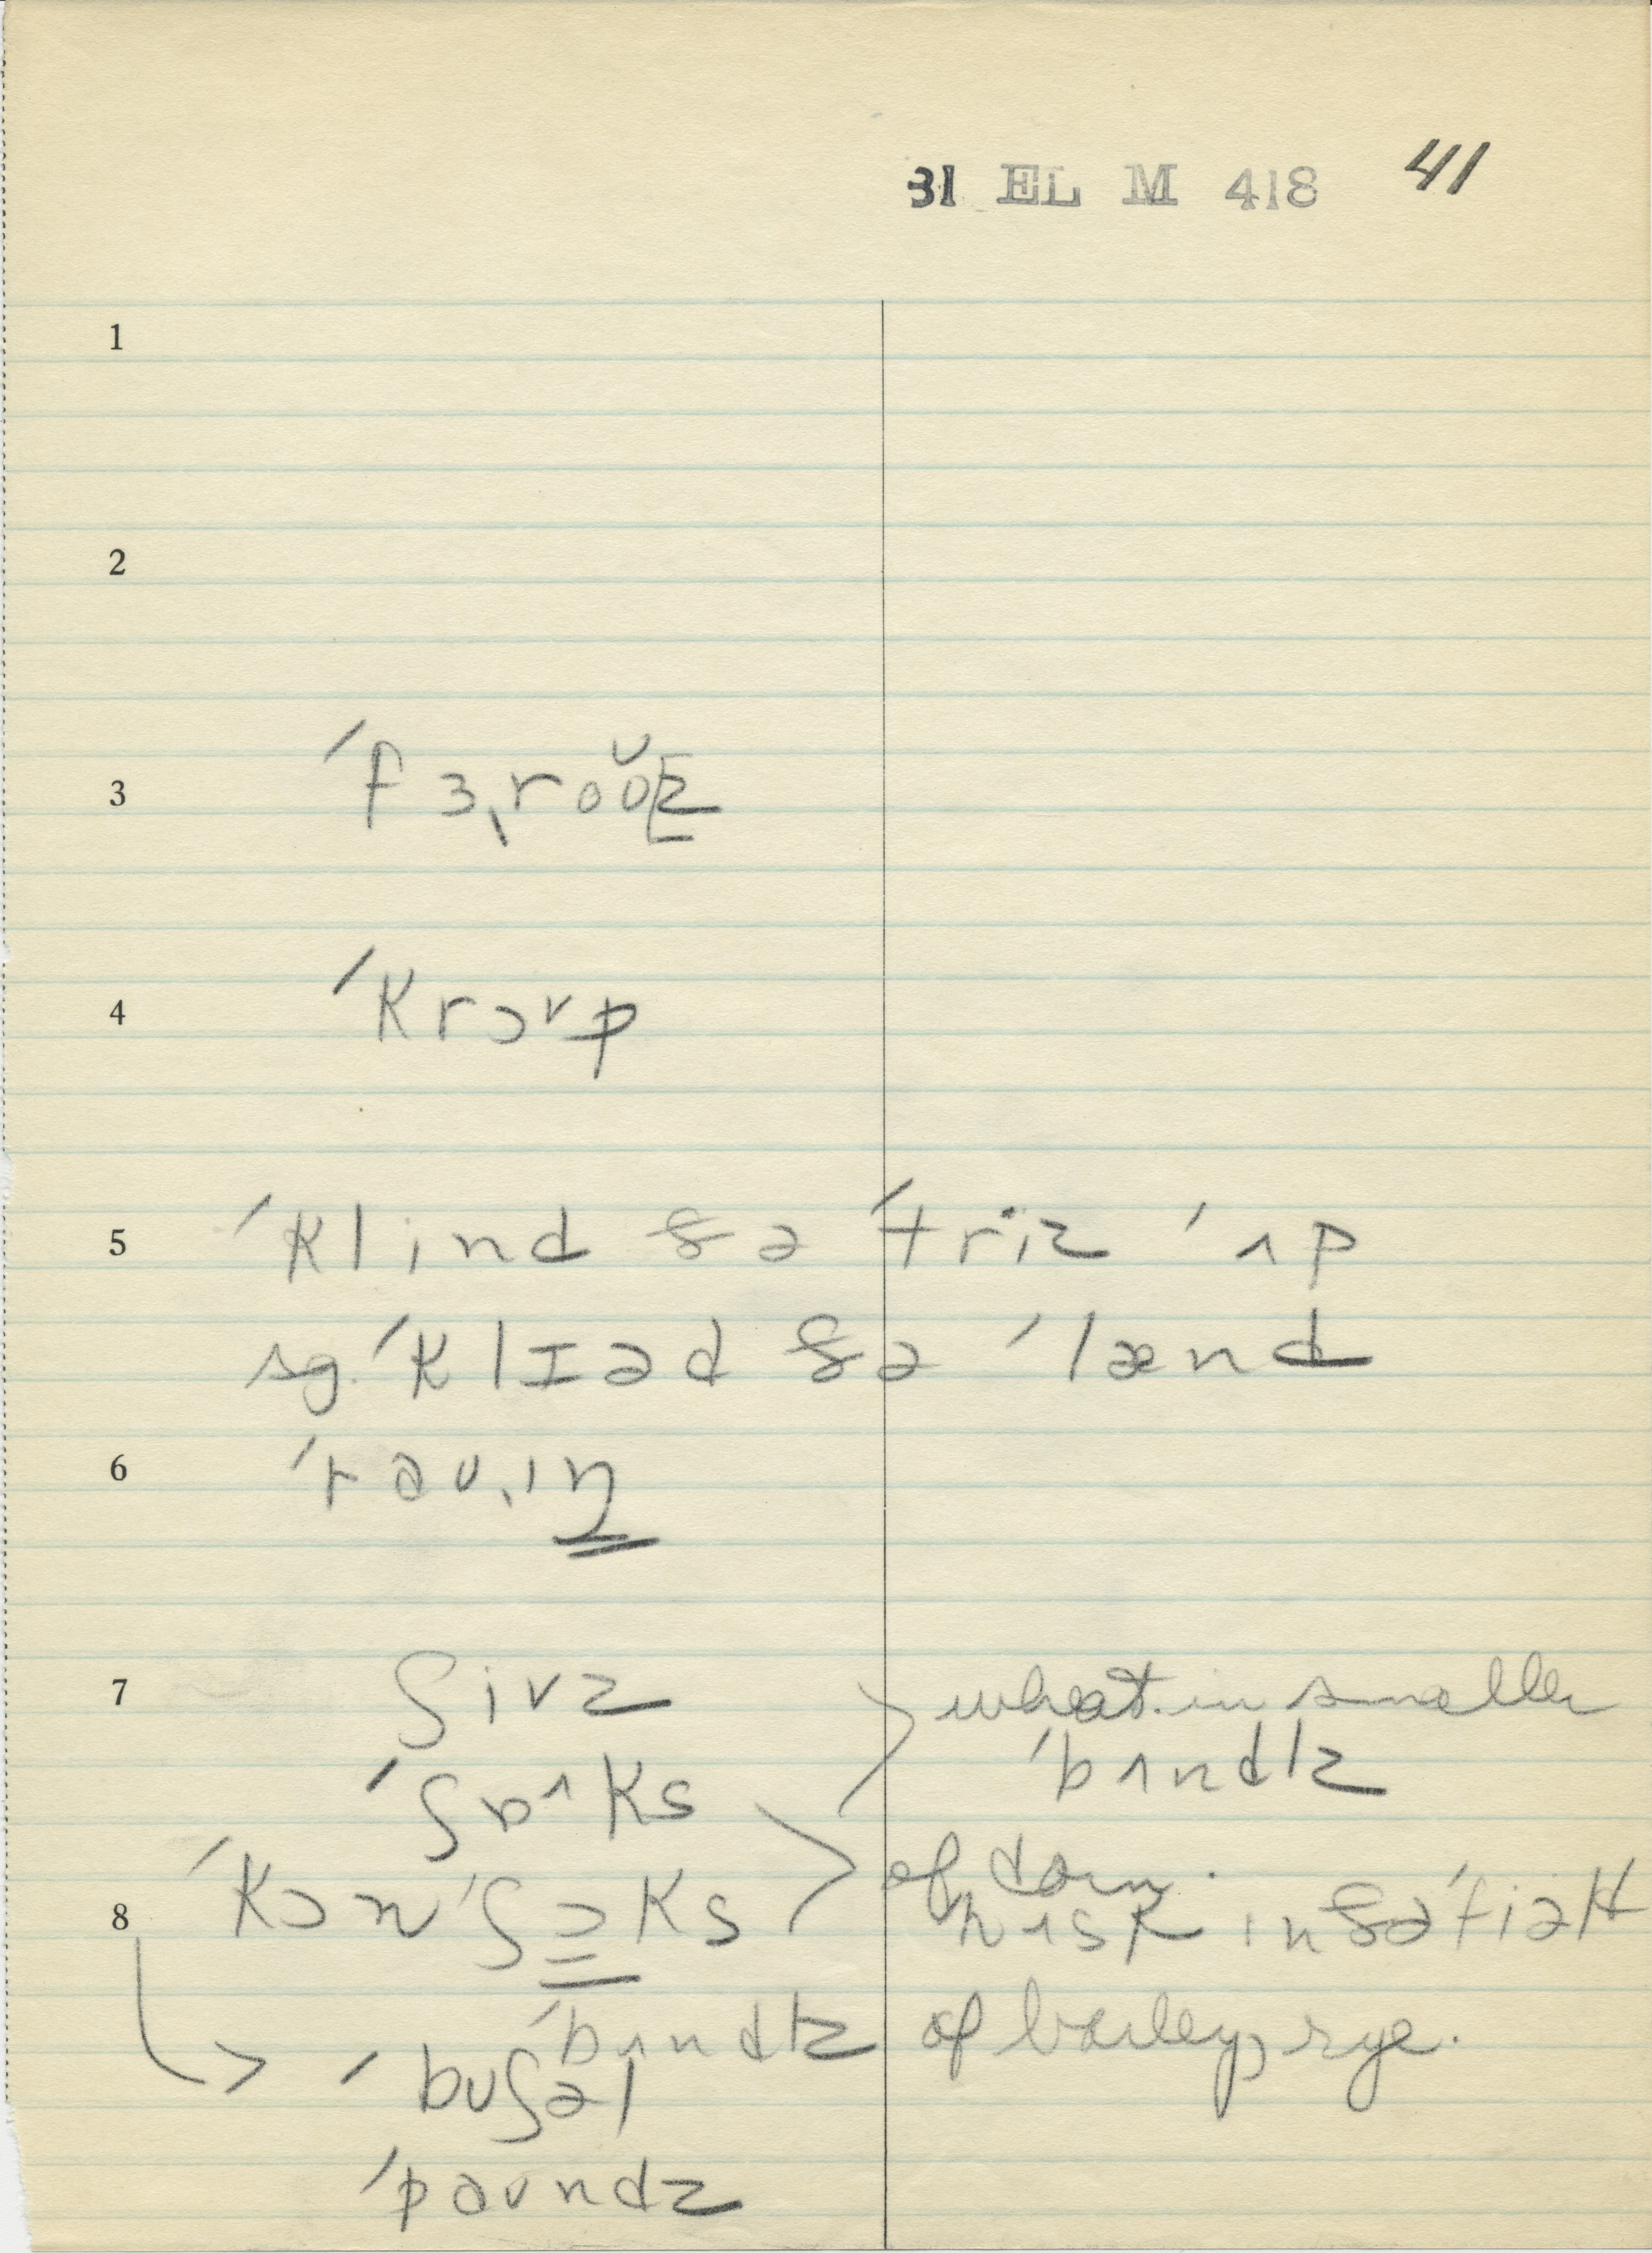 31 EL M 418 41
1
2
3 ˈfɜˌroʊ̆z
4 ˈkrɔᵛp
5 ˈklind ðə ˈtriz ˈʌp
sg. ˈklɪəd ðə ˈlænd
6 ˈrəʊ.ɪŋ
7 ʃivz > wheat in smaller
ˈbʌndlz
ˈʃɒ^ks > of corn.
8 ˈkɔnˈʃɔks hʌsk in ðə ˈfiəld
ˈbʌndlz of barley, rye.
> ˈbʊʃəl
ˈpaʊndz